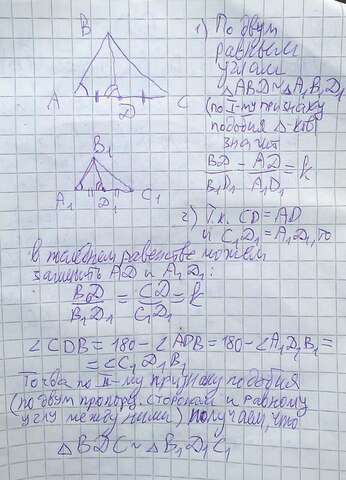 B
A
D
C
B₁
A₁
D₁
C₁
1) По двум
равным
углам
△ABD ~ △A₁B₁D₁
(по I-му признаку
подобия △-ков)
значит
BD/B₁D₁ = AD/A₁D₁ = k
2) Т.к. CD = AD
и C₁D₁ = A₁D₁, то
в последнем равенстве можем
заменить AD и A₁D₁:
BD/B₁D₁ = CD/C₁D₁ = k
∠CDB = 180 - ∠ADB = 180 - ∠A₁D₁B₁ =
= ∠C₁D₁B₁
Тогда по II-му признаку подобия
(по двум пропорц. сторонам и равному
углу между ними) получаем, что
△BDC ~ △B₁D₁C₁